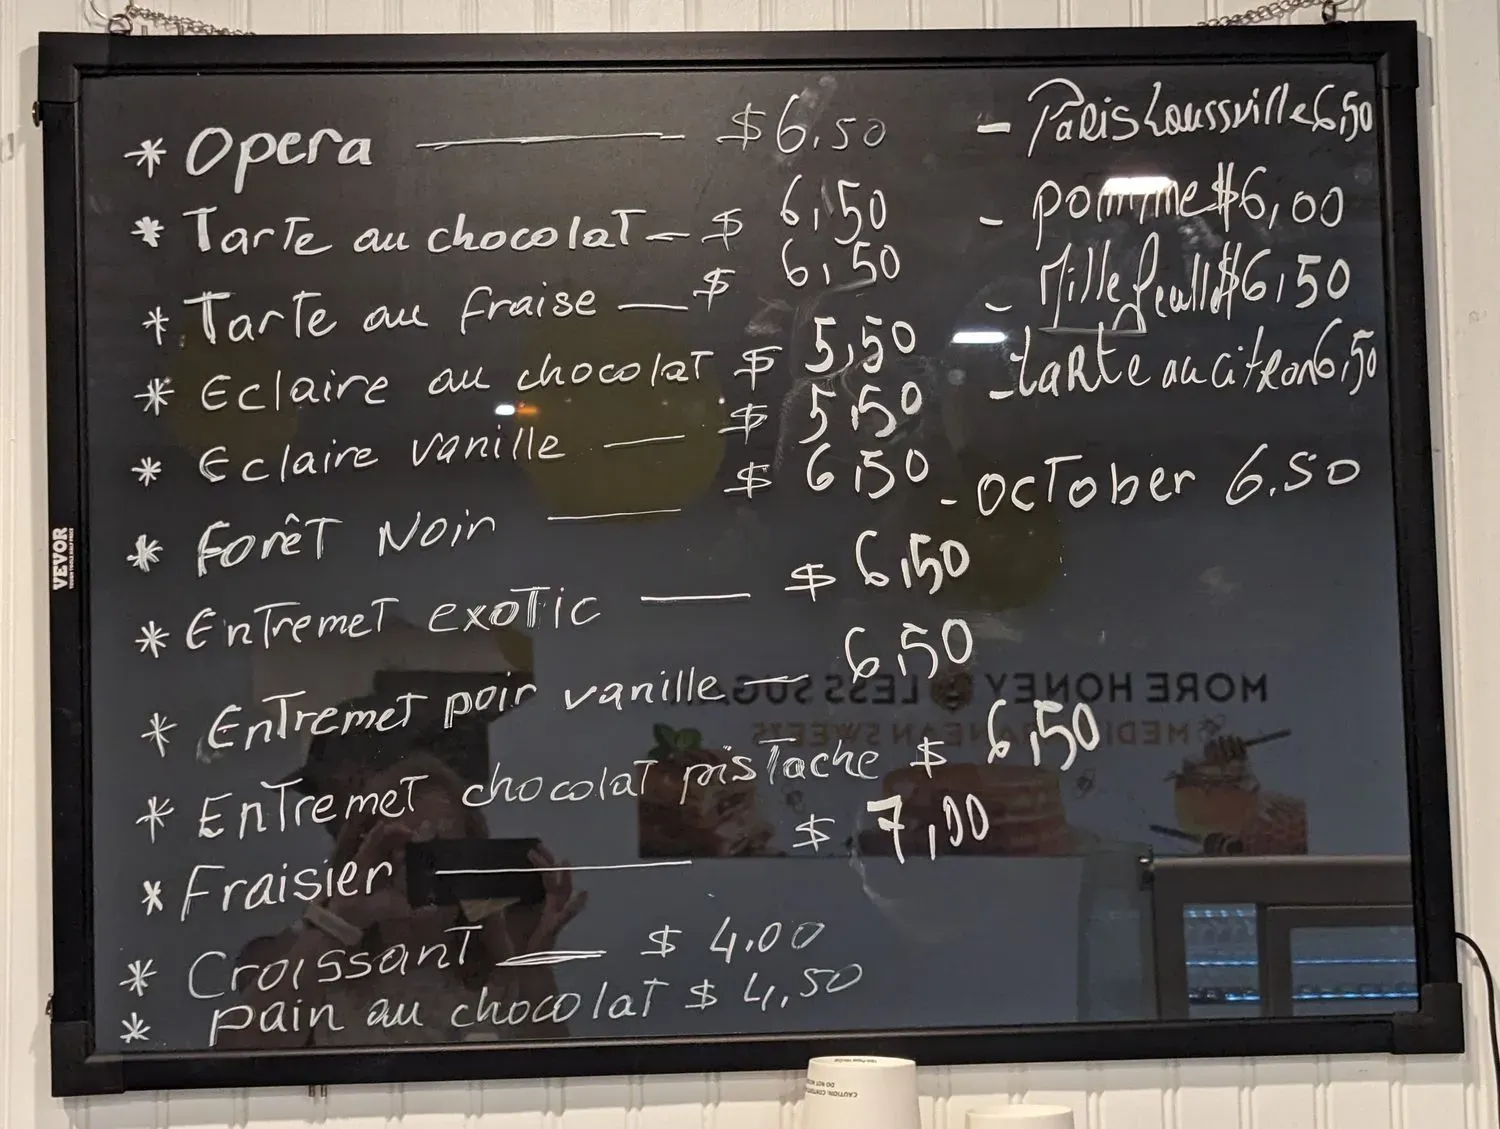 * Opera $6,50
* Tarte au chocolat - $ 6,50
* Tarte au fraise — $ 6,50
* Eclaire au chocolat $ 5,50
* Eclaire vanille — $ 5,50
* Forêt Noir — $ 6,50
* Entremet exotic — $ 6,50
* Entremet poir vanille — 6,50
* Entremet chocolat pistache $ 6,50
* Fraisier — $ 7,00
* Croissant — $ 4,00
* pain au chocolat $ 4,50
- Paris Loussville 6,50
- pomme $6,00
- Mille feuille $6,50
- tarte au citron 6,50
- October 6.50
VEVOR
MORE HONEY LESS SUGAR